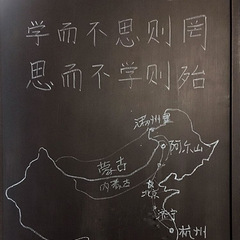 学而不思则罔
思而不学则殆
满州里
阿尔山
蒙古
内蒙古
北京
济宁
杭州